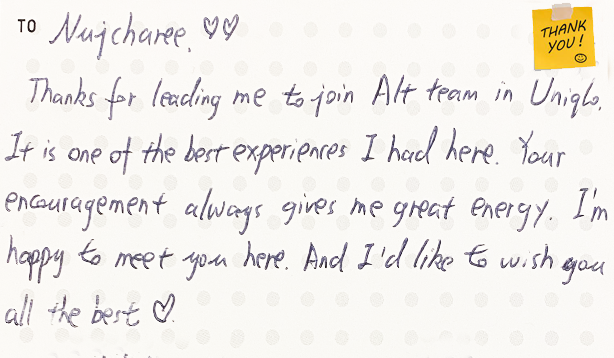 TO Nujcharee. ♡♡
THANK
YOU!
Thanks for leading me to join Alt team in Uniqlo.
It is one of the best experiences I had here. Your
encouragement always gives me great energy. I'm
happy to meet you here. And I'd like to wish you
all the best ♡.